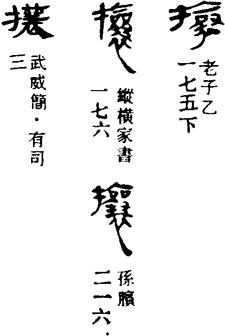 攘
老子乙
一七五下
攘
縱橫家書
一七六
攘
孫臏
二一六
攘
武威簡·有司
三